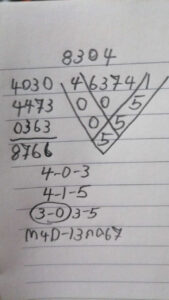 8304
4030 4 6374 1
4473 0 0 5
0363 0 5
8766 5
4-0-3
4-1-5
3-0 3-5
M4D-13nd67